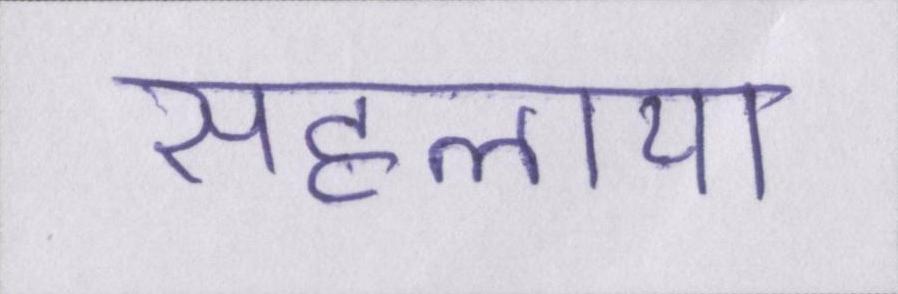 सहलाया